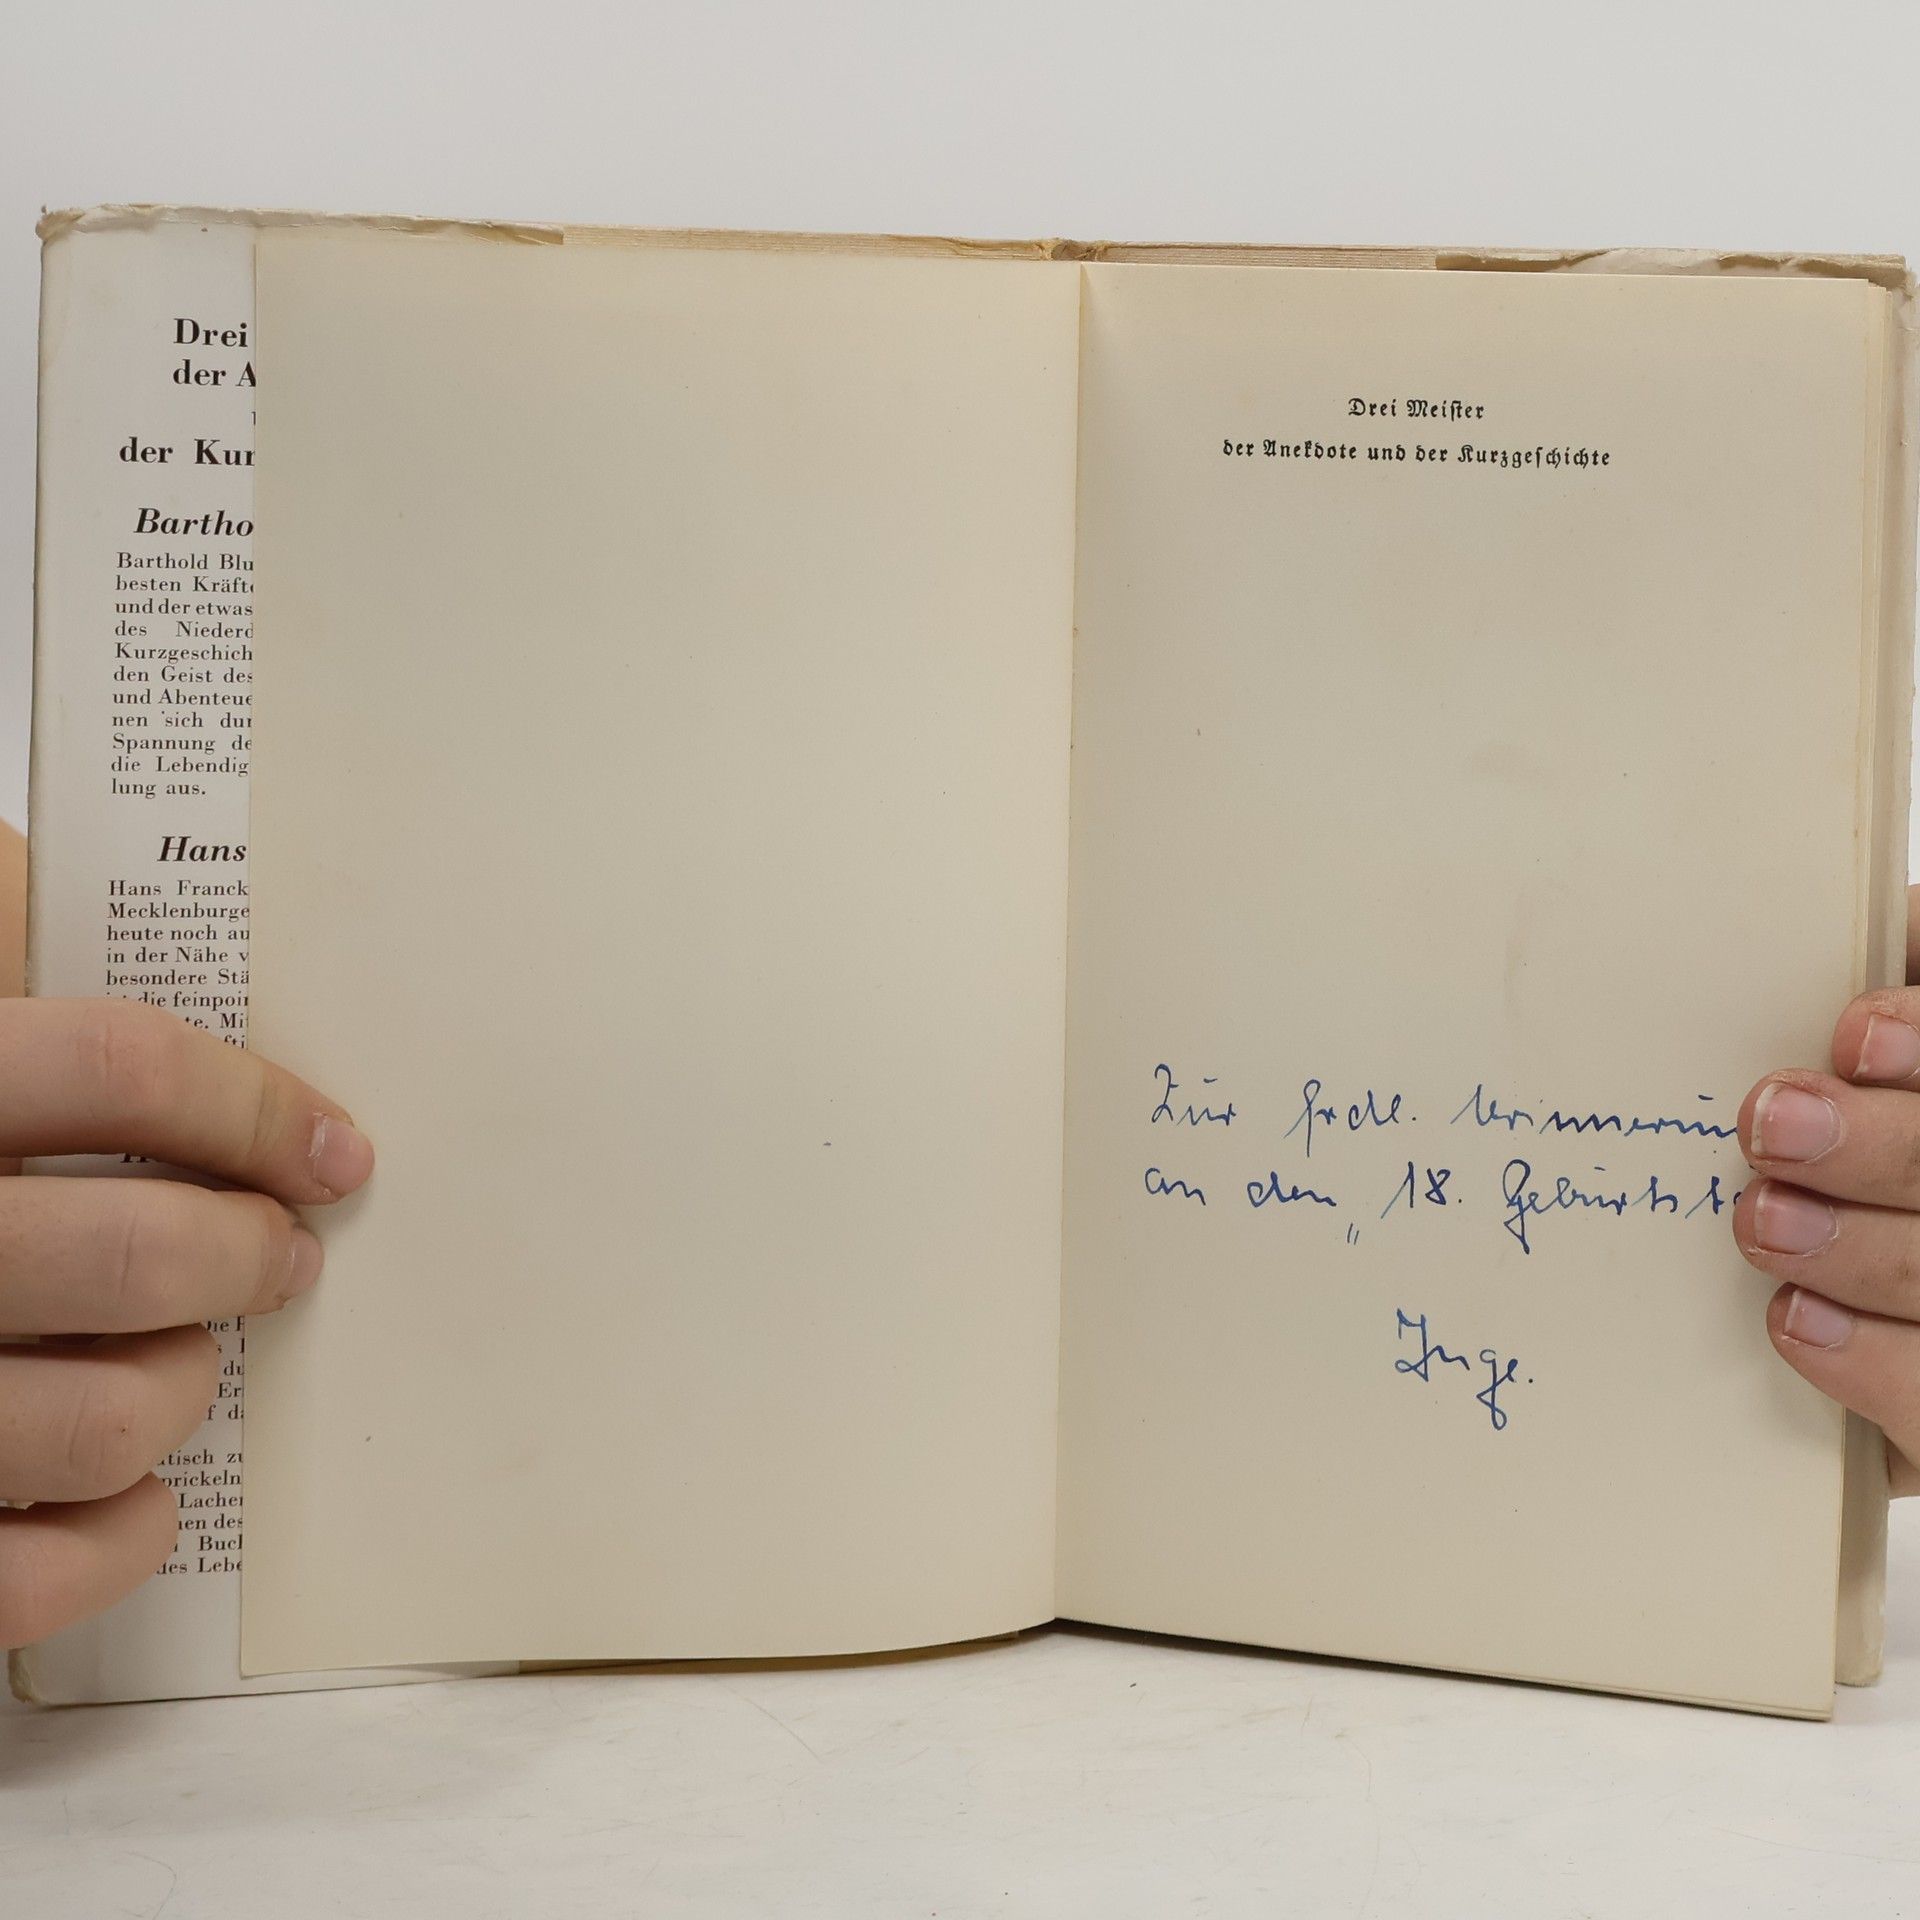 Drei
der A
der Kur
Bartho
Barthold Blu
besten Kräfte
und der etwas
des Niederd
Kurzgeschich
den Geist des
und Abenteue
nen sich dur
Spannung de
die Lebendig
lung aus.
Hans
Hans Franck
Mecklenburge
heute noch au
in der Nähe v
besondere Stä
die feinpoin
te. Mi
Die F
du
Er
f da
tisch zu
prickeln
Lachen
en des
Buch
des Lebe
Drei Meiſter
der Anekdote und der Kurzgeſchichte
Zur frdl. Erinnerun
an den „ 18. Geburtsta
Inge.